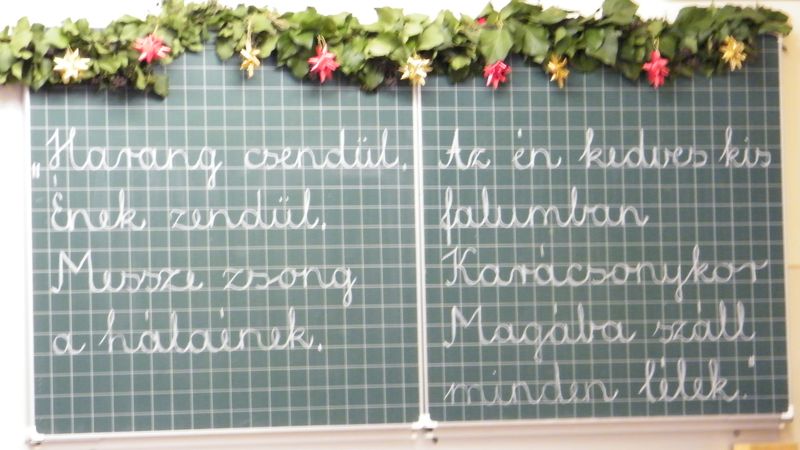 „Harang csendül,
Ének zendül,
Messze zsong
a hálaének.
Az én kedves kis
falumban
Karácsonykor
Magába száll
minden lélek."